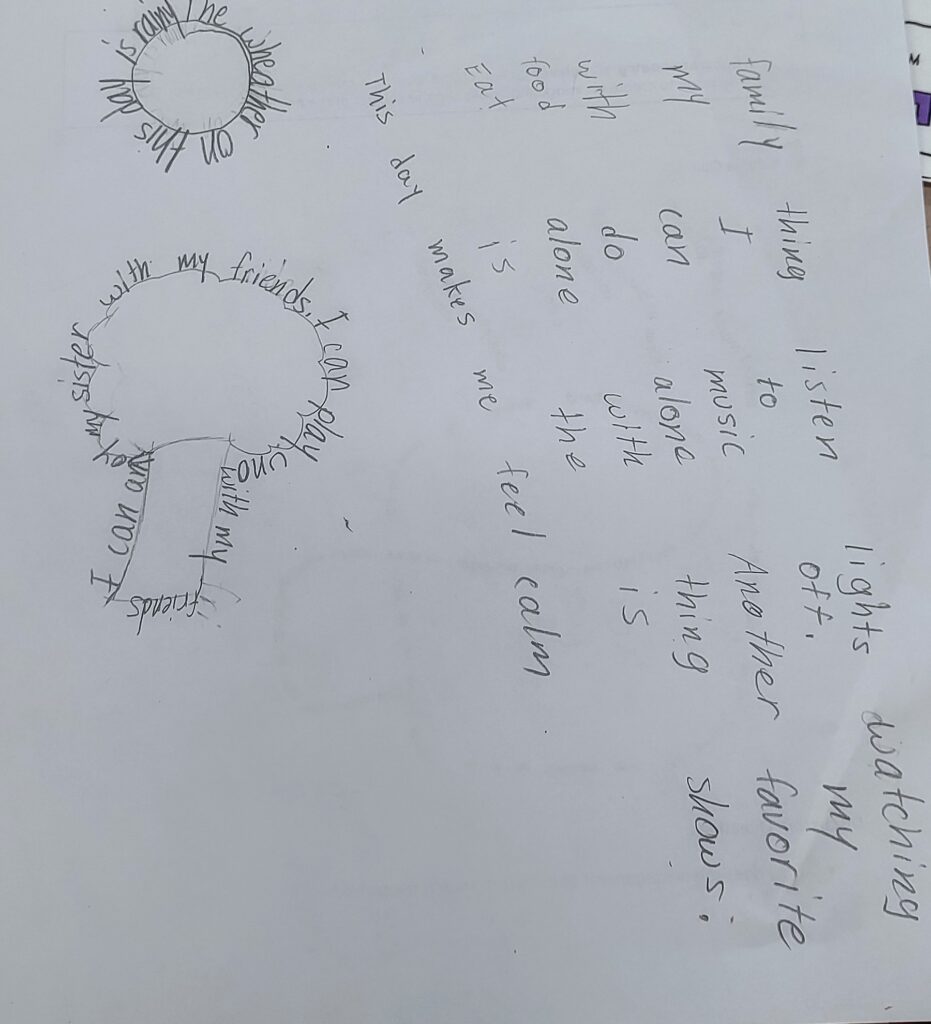 The wheather on this day is rainy
I can annoy my sister with my friends, I can play uno with my friends
This day makes me feel calm
Eat
food
with
my
family
thing
I
can
do
alone
is
listen
to
music
alone
with
the
lights
off.
Another
thing
is
watching
my
favorite
shows.